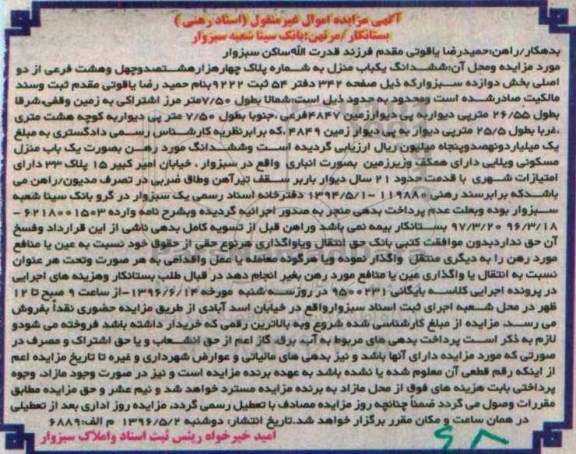 آگهی مزایده اموال غیرمنقول (اسناد رهنی)
بستانکار/مرتهن:بانک سینا شعبه سبزوار
بدهکار/راهن:حمیدرضا یاقوتی مقدم فرزند قدرت الله ساکن سبزوار
مورد مزایده ومحل آن:ششدانگ یکباب منزل به شماره پلاک چهارهزارهشتصدوچهل وهشت فرعی از دو
اصلی بخش دوازده سبزوارکه ذیل صفحه ۳۴۲ دفتر ۵۴ ثبت ۹۲۲۲ بنام حمید رضا یاقوتی مقدم ثبت وسند
مالکیت صادرشده است ومحدود به حدود ذیل است:شمالا بطول ۷/۵۰متر مرز اشتراکی به زمین وقفی،شرقا
بطول ۲۶/۵۵ مترپی دیواربه پی دیوارزمین ۴۸۴۷فرعی ،جنوبا بطول ۷/۵۰ متر پی دیواربه کوچه هشت متری
،غربا بطول ۲۵/۵ مترپی دیوار به پی دیوار زمین ۴۸۴۹ ،که برابرنظریه کارشناس رسمی دادگستری به مبلغ
یک میلیاردونهصدوپنجاه میلیون ریال ارزیابی گردیده است وششدانگ مورد رهن بصورت یک باب منزل
مسکونی ویلایی دارای همکف وزیرزمین بصورت انباری واقع در سبزوار ، خیابان امیر کبیر ۱۵ پلاک ۳۳ دارای
امتیازات شهری با قدمت حدود ۲۱ سال دیوار باربر سقف تیرآهن وطاق ضربی در تصرف مدیون/راهن می
باشدکه برابرسند رهنی ۱۱۹۸۸۰ -۱۳۹۴/۵/۱ دفترخانه اسناد رسمی یک سبزوار در گرو بانک سینا شعبه
سبزوار بوده وبعلت عدم پرداخت بدهی منجر به صدور اجرائیه گردیده وبشرح نامه وارده ۶۲۱۸۰۰۱۵۰۳ -
۹۶/۳/۱۸ ۹۷/۳/۲۰ بستانکار بیمه نمی باشد وراهن قبل از تسویه کامل بدهی ناشی از این قرارداد وفسخ
آن حق نداردبدون موافقت کتبی بانک حق انتقال ویاواگذاری هرنوع حقی از حقوق خود نسبت به عین یا منافع
مورد رهن را به دیگری منتقل واگذار نموده ویا هرگونه معامله یا عمل واقدامی به هر صورت وتحت هر عنوان
نسبت به انتقال یا واگذاری عین یا منافع مورد رهن بغیر انجام دهد در قبال طلب بستانکار وهزینه های اجرایی
در پرونده اجرایی کلاسه بایگانی ۹۵۰۰۲۳۱ در روزسه شنبه مورخه ۱۳۹۶/۶/۱۴-از ساعت ۹ صبح تا ۱۲
ظهر در محل شعبه اجرای ثبت اسناد سبزوارواقع در خیابان اسد آبادی از طریق مزایده حضوری نقداً بفروش
می رسد. مزایده از مبلغ کارشناسی شده شروع وبه بالاترین رقمی که خریدار داشته باشد فروخته می شودو
لازم به ذکر است پرداخت بدهی های مربوط به آب، برق گاز اعم از حق انشعاب و یا حق اشتراک و مصرف در
صورتی که مورد مزایده دارای آنها باشد و نیز بدهی های مالیاتی و عوارض شهرداری و غیره تا تاریخ مزایده اعم
از اینکه رقم قطعی آن معلوم شده یا نشده باشد به عهده برنده مزایده است و نیز در صورت وجود مازاد، وجوه
پرداختی بابت هزینه های فوق از محل مازاد به برنده مزایده مسترد خواهد شد و نیم عشر و حق مزایده مطابق
مقررات وصول می گردد ضمناً چنانچه روز مزایده مصادف با تعطیل رسمی گردد، مزایده روز اداری بعد از تعطیلی
در همان ساعت و مکان مقرر برگزار خواهد شد.تاریخ انتشار: دوشنبه ۱۳۹۶/۵/۲ م الف:۶۸۸۹
امید خیرخواه رییس ثبت اسناد واملاک سبزوار